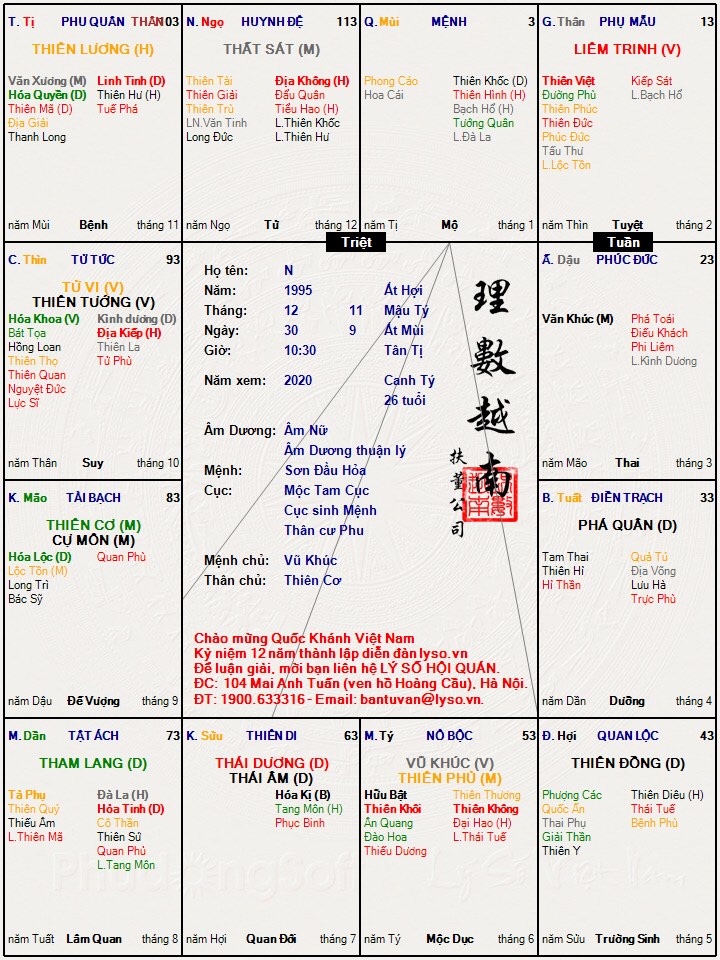 T. Tị PHU QUÂN THÂN 103
THIÊN LƯƠNG (H)
Văn Xương (M) Linh Tinh (D)
Hóa Quyền (D) Thiên Hư (H)
Thiên Mã (D) Tuế Phá
Địa Giải
Thanh Long
năm Mùi Bệnh tháng 11
N. Ngọ HUYNH ĐỆ 113
THẤT SÁT (M)
Thiên Tài Địa Không (H)
Thiên Giải Đẩu Quân
Thiên Trù Tiểu Hao (H)
LN.Văn Tinh L.Thiên Khốc
Long Đức L.Thiên Hư
năm Ngọ Tử tháng 12
Q. Mùi MỆNH 3
Phong Cáo Thiên Khốc (D)
Hoa Cái Thiên Hình (H)
Bạch Hổ (H)
Tướng Quân
L.Đà La
năm Tị Mộ tháng 1
G. Thân PHỤ MẪU 13
LIÊM TRINH (V)
Thiên Việt Kiếp Sát
Đường Phù L.Bạch Hổ
Thiên Phúc
Thiên Đức
Phúc Đức
Tấu Thư
L.Lộc Tồn
năm Thìn Tuyệt tháng 2
Triệt
Tuần
C. Thìn TỬ TỨC 93
TỬ VI (V)
THIÊN TƯỚNG (V)
Hóa Khoa (V) Kình dương (D)
Bát Tọa Địa Kiếp (H)
Hồng Loan Thiên La
Thiên Thọ Tử Phù
Thiên Quan
Nguyệt Đức
Lực Sĩ
năm Thân Suy tháng 10
Họ tên: N
Năm: 1995 Ất Hợi
Tháng: 12 11 Mậu Tý
Ngày: 30 9 Ất Mùi
Giờ: 10:30 Tân Tị
Năm xem: 2020 Canh Tý
26 tuổi
Âm Dương: Âm Nữ
Âm Dương thuận lý
Mệnh: Sơn Đầu Hỏa
Cục: Mộc Tam Cục
Cục sinh Mệnh
Thân cư Phu
Mệnh chủ: Vũ Khúc
Thân chủ: Thiên Cơ
理數越南
扶董公司
Chào mừng Quốc Khánh Việt Nam
Kỷ niệm 12 năm thành lập diễn đàn lyso.vn
Để luận giải, mời bạn liên hệ LÝ SỐ HỘI QUÁN.
ĐC: 104 Mai Anh Tuấn (ven hồ Hoàng Cầu), Hà Nội.
ĐT: 1900.633316 - Email: bantuvan@lyso.vn.
Ấ. Dậu PHÚC ĐỨC 23
Văn Khúc (M) Phá Toái
Điếu Khách
Phi Liêm
L.Kình Dương
năm Mão Thai tháng 3
K. Mão TÀI BẠCH 83
THIÊN CƠ (M)
CỰ MÔN (M)
Hóa Lộc (D) Quan Phù
Lộc Tồn (M)
Long Trì
Bác Sỹ
năm Dậu Đế Vượng tháng 9
B. Tuất ĐIỀN TRẠCH 33
PHÁ QUÂN (D)
Tam Thai Quả Tú
Thiên Hỉ Địa Võng
Hỉ Thần Lưu Hà
Trực Phù
năm Dần Dưỡng tháng 4
M. Dần TẬT ÁCH 73
THAM LANG (D)
Tả Phụ Đà La (H)
Thiên Quý Hỏa Tinh (D)
Thiếu Âm Cô Thần
L.Thiên Mã Thiên Sứ
Quan Phủ
L.Tang Môn
năm Tuất Lâm Quan tháng 8
K. Sửu THIÊN DI 63
THÁI DƯƠNG (D)
THÁI ÂM (D)
Hóa Kị (B)
Tang Môn (H)
Phục Binh
năm Hợi Quan Đới tháng 7
M. Tý NÔ BỘC 53
VŨ KHÚC (V)
THIÊN PHỦ (M)
Hữu Bật Thiên Thương
Thiên Khôi Thiên Không
Ân Quang Đại Hao (H)
Đào Hoa L.Thái Tuế
Thiếu Dương
năm Tý Mộc Dục tháng 6
Đ. Hợi QUAN LỘC 43
THIÊN ĐỒNG (D)
Phượng Các Thiên Diêu (H)
Quốc Ấn Thái Tuế
Thai Phụ Bệnh Phù
Giải Thần
Thiên Y
năm Sửu Trường Sinh tháng 5